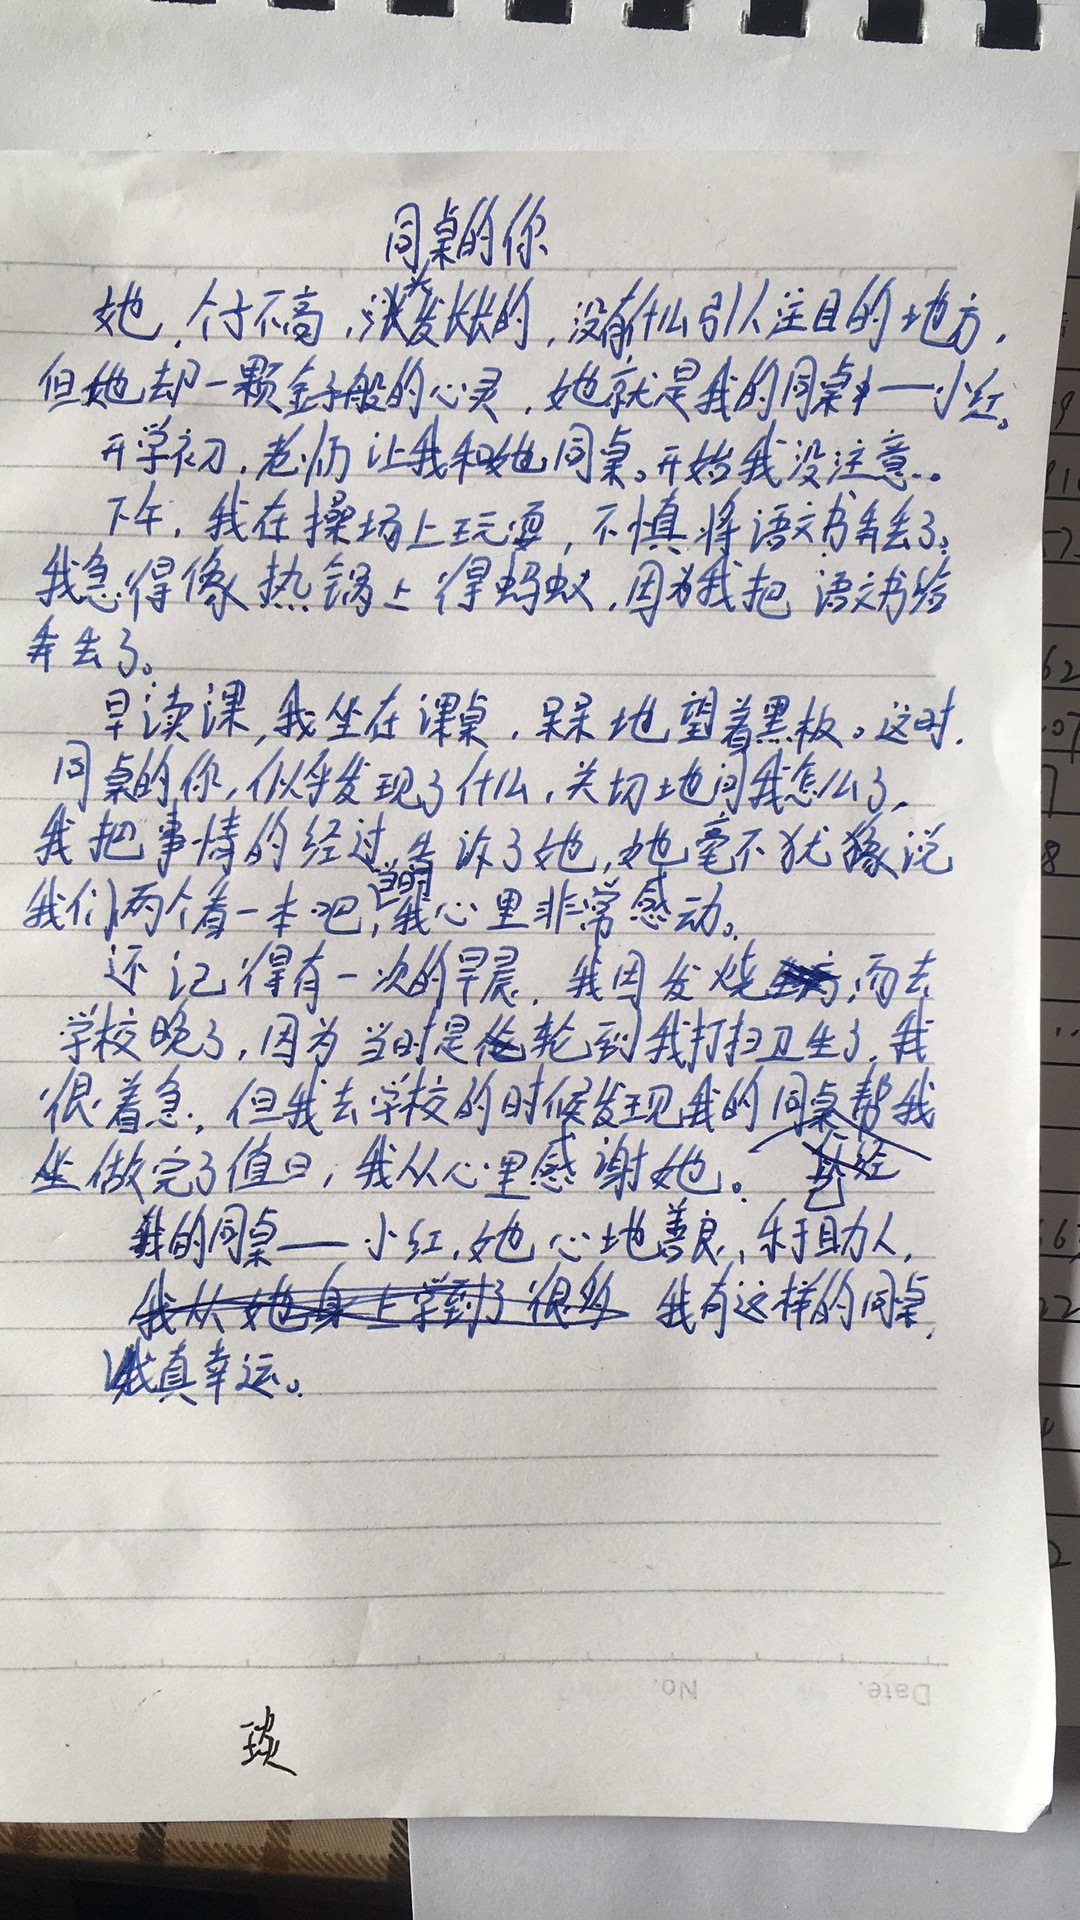 同桌的你
她，个子不高，头发长长的，没有什么引人注目的地方，
但她却一颗金子般的心灵，她就是我的同桌——小红。
开学初，老师让我和她同桌。开始我没注意。
下午，我在操场上玩耍，不慎将语文书弄丢了。
我急得像热锅上得蚂蚁，因为我把语文书给
弄丢了。
早读课，我坐在课桌，呆呆地望着黑板。这时，
同桌的你，似乎发现了什么，关切地问我怎么了，
我把事情的经过告诉了她，她毫不犹豫说
我们两个看一本吧，当时我心里非常感动。
还记得有一次的早晨，我因发烧，而去
学校晚了，因为当时是轮到我打扫卫生了，我
很着急，但我去学校的时候发现我的同桌帮我
做完了值日，我从心里感谢她。
已经
我的同桌——小红，她心地善良，乐于助人，
我从她身上学到了很多 我有这样的同桌，
我真幸运。
Date.
No.